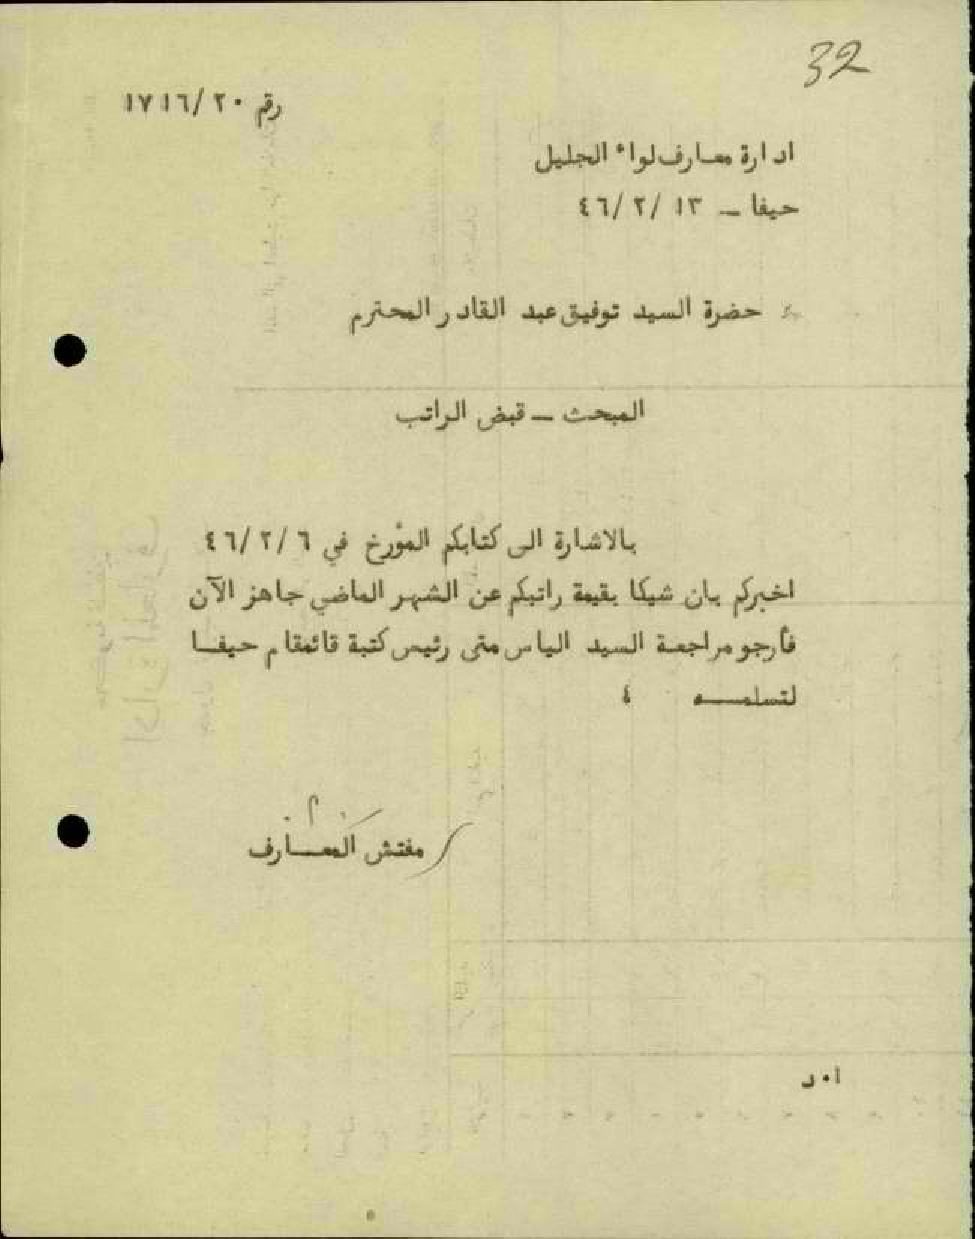 32
رقم ١٧١٦/٢٠
ادارة معارف لواء الجليل
حيفا ـ ٤٦/٢/١٣
حضرة السيد توفيق عبد القادر المحترم
المبحث ـ قبض الراتب
بالاشارة الى كتابكم المؤرخ في ٤٦/٢/٦
اخبركم بان شيكا بقيمة راتبكم عن الشهر الماضي جاهز الآن
فأرجو مراجعة السيد الياس متى رئيس كتبة قائمقام حيفا
لتسلمه ٤
مفتش المعارف
ا٠د